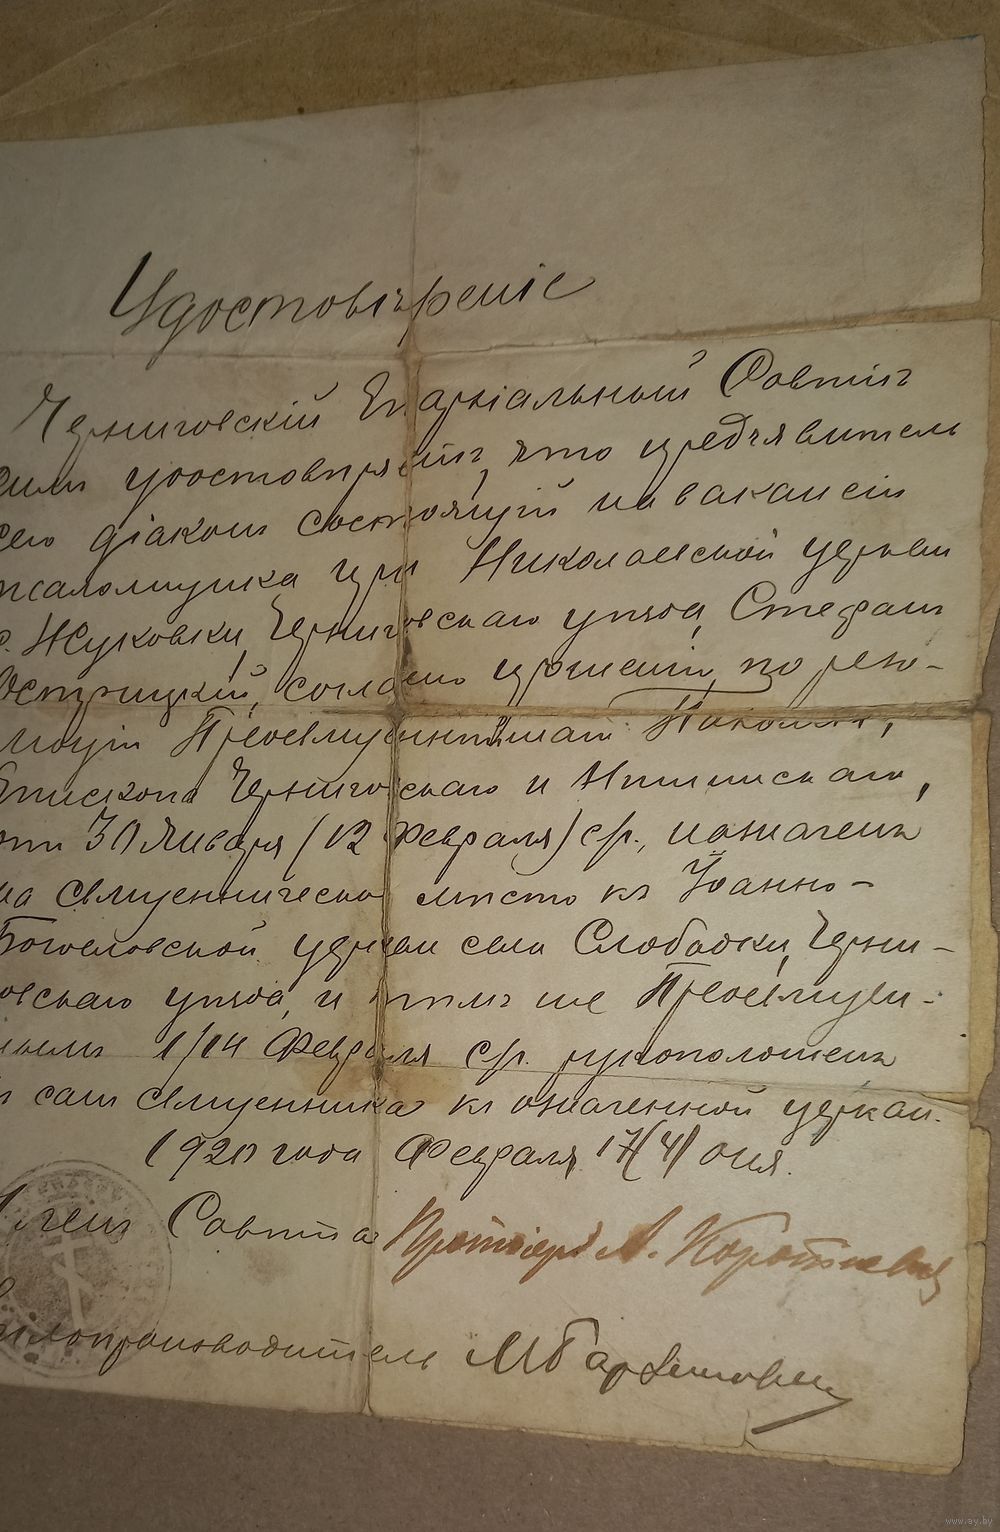 Удостовѣреніе
Черниговскій Епархіальный Совѣтъ
симъ удостовѣряетъ, что предъявитель
сего діаконъ состоящій на вакансіи
псаломщика при Николаевской церкви
с. Жуковки, Черниговскаго уѣзда, Стефанъ
Острицкій, согласно прошенію, по резо-
люціи Преосвященнѣйшаго Пахомія,
Епископа Черниговскаго и Нѣжинскаго,
отъ 30 Января (12 Февраля) с/г., назначенъ
на священническое мѣсто къ Іоанно-
Богословской церкви села Слободки, Черни-
говскаго уѣзда, и тѣмъ же Преосвящен-
нымъ 1/14 Февраля с/г. рукоположенъ
въ санъ священника къ означенной церкви.
1920 года Февраля 17(4) дня.
Членъ Совѣта Протоіерей А.
Дѣлопроизводитель
www.ay.by